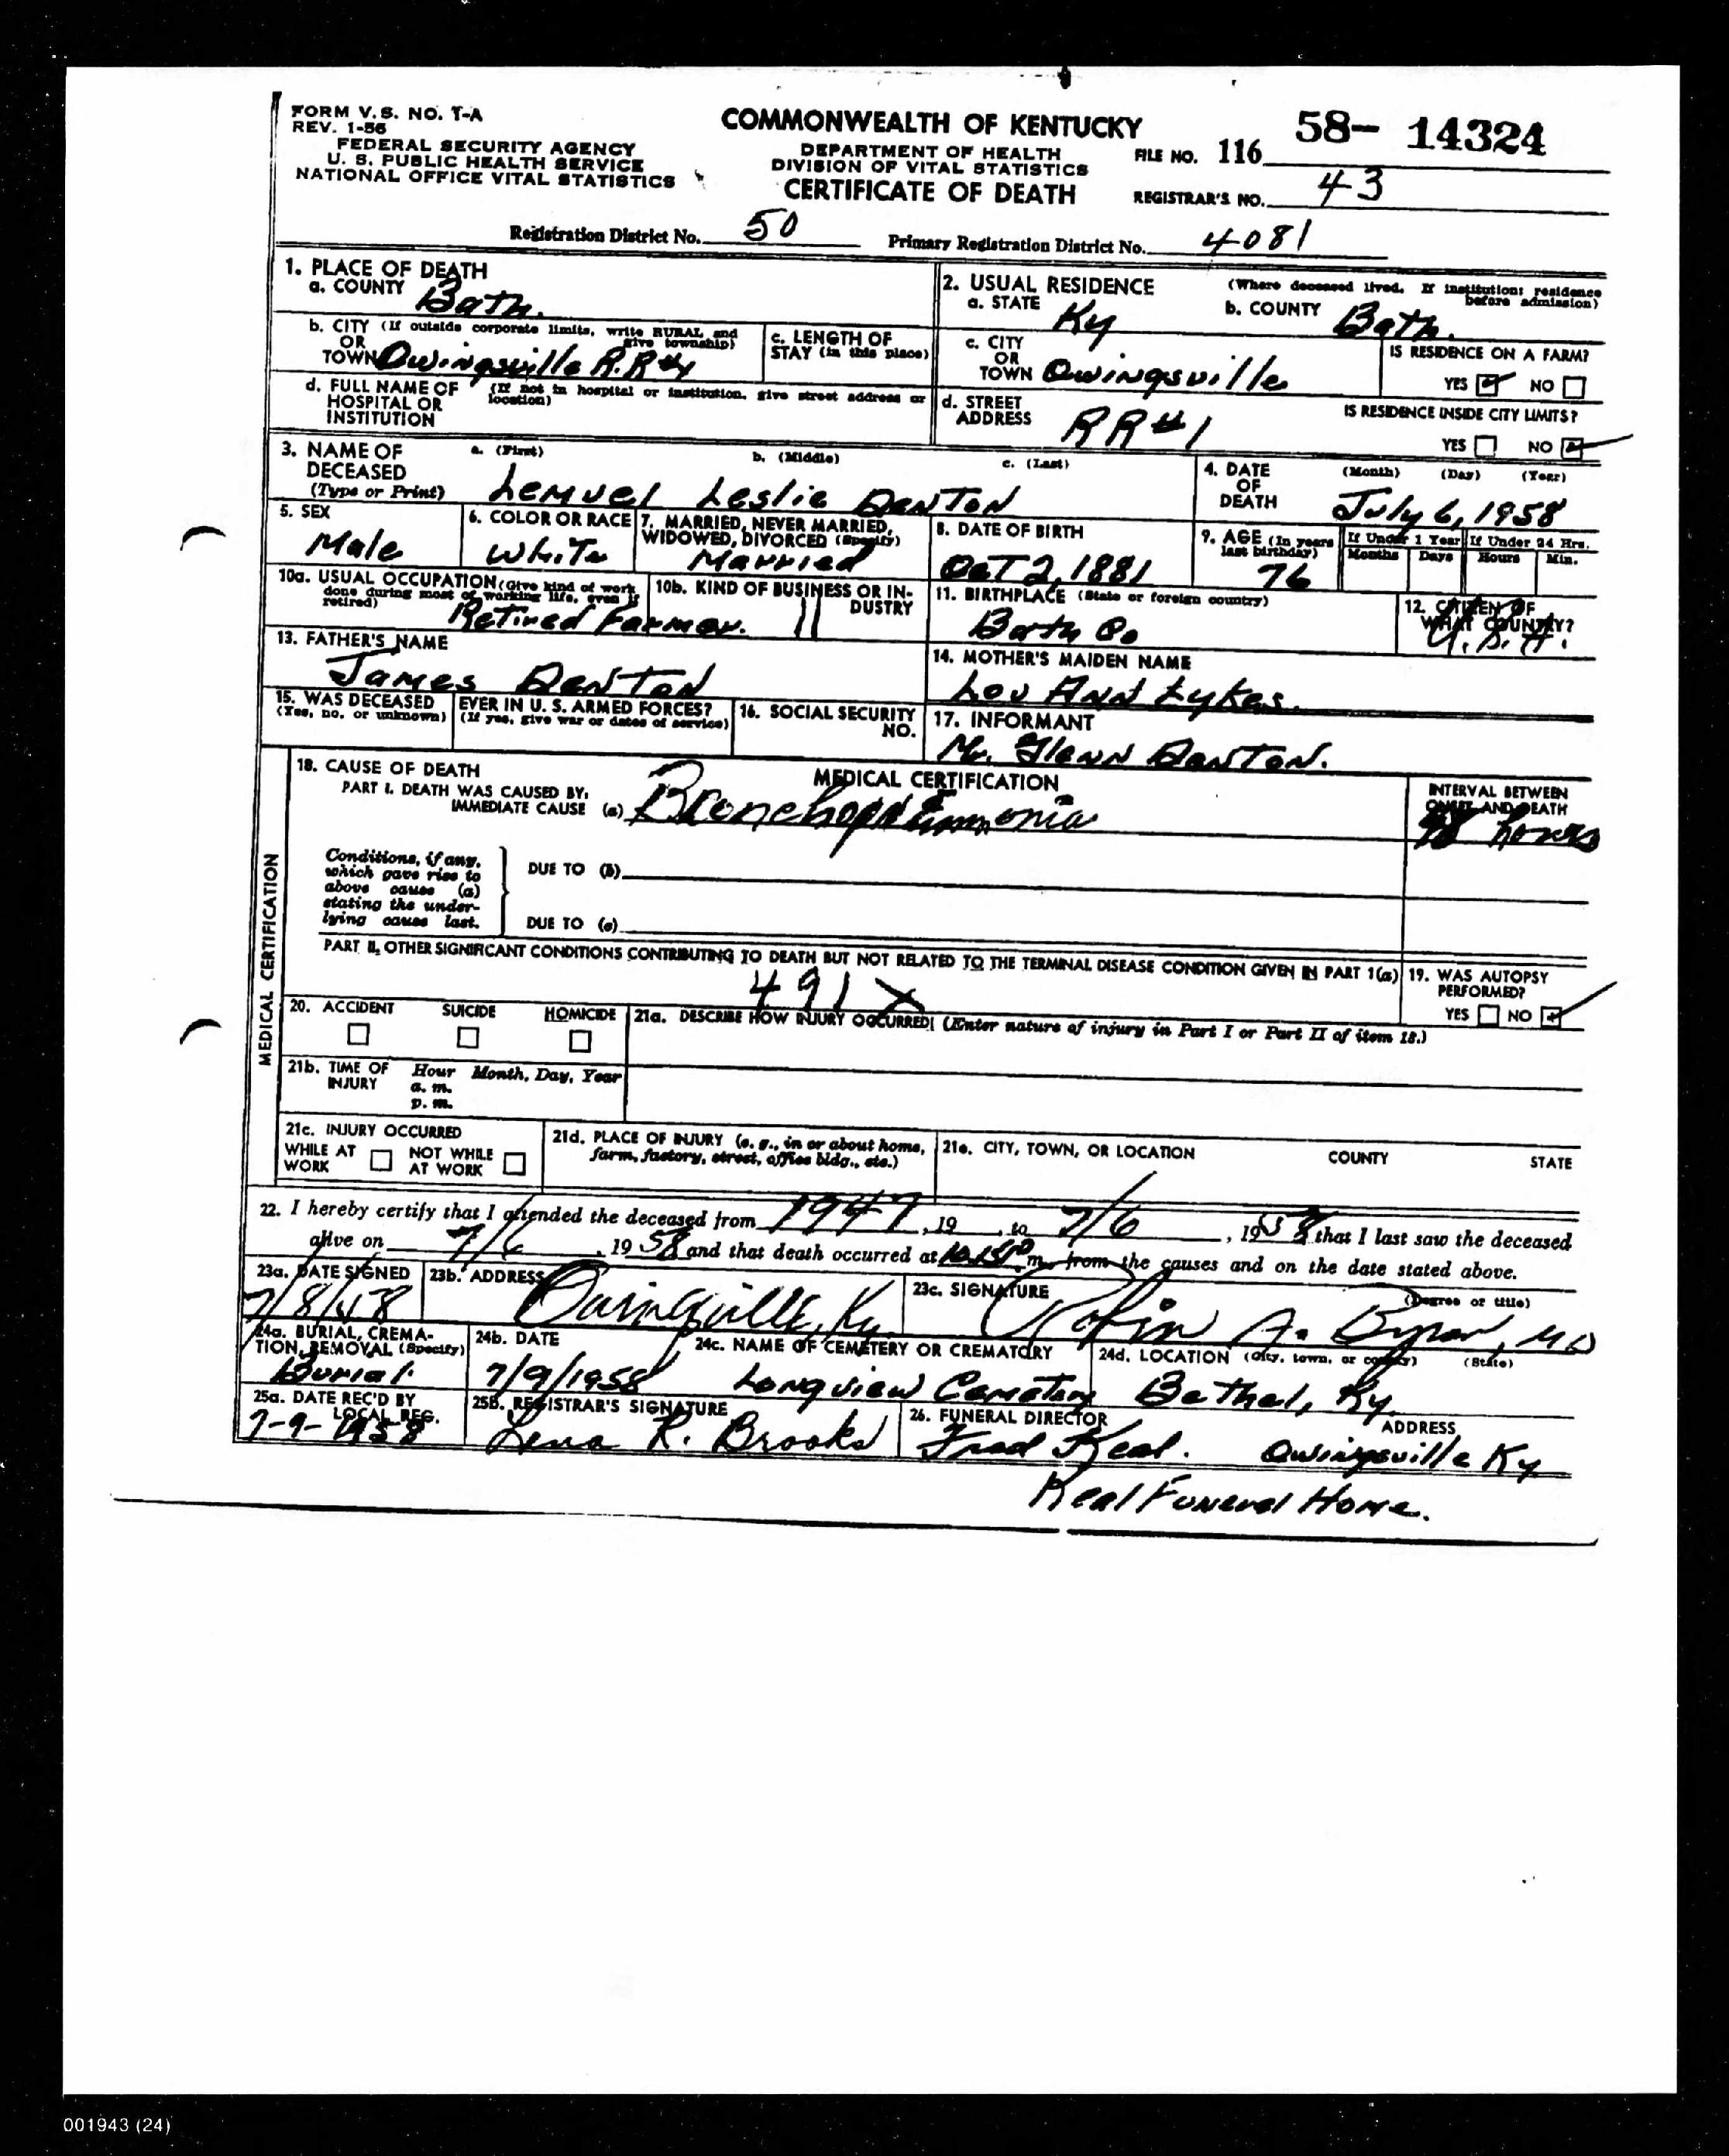 FORM V. S. NO. T-A
REV. 1-56
FEDERAL SECURITY AGENCY
U. S. PUBLIC HEALTH SERVICE
NATIONAL OFFICE VITAL STATISTICS
COMMONWEALTH OF KENTUCKY
DEPARTMENT OF HEALTH
DIVISION OF VITAL STATISTICS
CERTIFICATE OF DEATH
FILE NO. 116 58- 14324
REGISTRAR'S NO. 43
Registration District No. 50 Primary Registration District No. 4081
1. PLACE OF DEATH
a. COUNTY Bath.
2. USUAL RESIDENCE (Where deceased lived. If institution: residence before admission)
a. STATE Ky b. COUNTY Bath.
b. CITY (If outside corporate limits, write RURAL and give township)
OR
TOWN Owingsville R.R#1
c. LENGTH OF STAY (in this place)
c. CITY
OR
TOWN Owingsville
IS RESIDENCE ON A FARM?
YES NO
d. FULL NAME OF HOSPITAL OR INSTITUTION (If not in hospital or institution, give street address or location)
d. STREET ADDRESS RR#1
IS RESIDENCE INSIDE CITY LIMITS?
YES NO
3. NAME OF DECEASED (Type or Print)
a. (First) b. (Middle) c. (Last)
Lemuel Leslie Denton
4. DATE OF DEATH (Month) (Day) (Year)
July 6, 1958
5. SEX
Male
6. COLOR OR RACE
White
7. MARRIED, NEVER MARRIED, WIDOWED, DIVORCED (Specify)
Married
8. DATE OF BIRTH
Oct 2, 1881
9. AGE (In years last birthday)
76
If Under 1 Year If Under 24 Hrs.
Months Days Hours Min.
10a. USUAL OCCUPATION (Give kind of work done during most of working life, even if retired)
Retired Farmer.
10b. KIND OF BUSINESS OR INDUSTRY
11. BIRTHPLACE (State or foreign country)
Bath Co
12. CITIZEN OF WHAT COUNTRY?
U.S.A.
13. FATHER'S NAME
James Denton
14. MOTHER'S MAIDEN NAME
Lou Ann Lykes.
15. WAS DECEASED EVER IN U. S. ARMED FORCES?
(Yes, no, or unknown) (If yes, give war or dates of service)
16. SOCIAL SECURITY NO.
17. INFORMANT
Mr. Glenn Denton.
MEDICAL CERTIFICATION
18. CAUSE OF DEATH
MEDICAL CERTIFICATION
PART I. DEATH WAS CAUSED BY:
IMMEDIATE CAUSE (a) Bronchopneumonia
INTERVAL BETWEEN ONSET AND DEATH
hours
Conditions, if any, which gave rise to above cause (a) stating the underlying cause last.
DUE TO (b)
DUE TO (c)
PART II, OTHER SIGNIFICANT CONDITIONS CONTRIBUTING TO DEATH BUT NOT RELATED TO THE TERMINAL DISEASE CONDITION GIVEN IN PART 1(a)
491 X
19. WAS AUTOPSY PERFORMED?
YES NO
20. ACCIDENT SUICIDE HOMICIDE
21a. DESCRIBE HOW INJURY OCCURRED! (Enter nature of injury in Part I or Part II of item 18.)
21b. TIME OF INJURY Hour Month, Day, Year
a. m.
p. m.
21c. INJURY OCCURRED
WHILE AT WORK NOT WHILE AT WORK
21d. PLACE OF INJURY (e. g., in or about home, farm, factory, street, office bldg., etc.)
21e. CITY, TOWN, OR LOCATION COUNTY STATE
22. I hereby certify that I attended the deceased from 1947, 19 , to 7/6, 1958 that I last saw the deceased
alive on 7/6, 1958 and that death occurred at m., from the causes and on the date stated above.
23a. DATE SIGNED
7/8/58
23b. ADDRESS
Owingsville, Ky.
23c. SIGNATURE (Degree or title)
A. Byron, MD
24a. BURIAL, CREMATION, REMOVAL (Specify)
Burial.
24b. DATE
7/9/1958
24c. NAME OF CEMETERY OR CREMATORY
Longview Cemetary
24d. LOCATION (City, town, or county) (State)
Bethel, Ky.
25a. DATE REC'D BY LOCAL REG.
7-9-1958
25b. REGISTRAR'S SIGNATURE
Lena R. Brooks
26. FUNERAL DIRECTOR ADDRESS
Fred Keal. Owingsville Ky
Keal Funeral Home.
001943 (24)